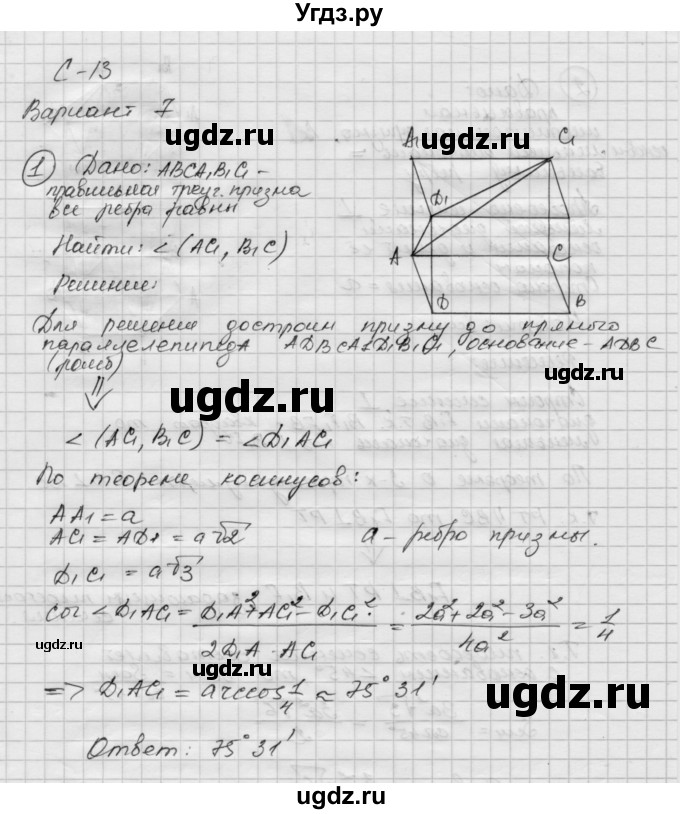 Угдз.ру
С-13
Вариант 7
ugdz.ru
ugdz.ru
① Дано: ABCA₁B₁C₁ -
правильная треуг. призма
все ребра равны
Найти: ∠(AC₁, B₁C)
Решение:
A₁
C₁
D₁
A
C
D
B
ugdz.ru
ugdz.ru
Для решения достроим призму до прямого
параллелепипеда ADBCA₁D₁B₁C₁, основание - ADBC
(ромб)
⇓
ugdz.ru
ugdz.ru
∠(AC₁, B₁C) = ∠D₁AC₁
По теореме косинусов:
ugdz.ru
AA₁ = a
AC₁ = AD₁ = a√2
a - ребро призмы.
D₁C₁ = a√3
ugdz.ru
ugdz.ru
cos ∠D₁AC₁ = (D₁A² + AC₁² - D₁C₁²) / (2D₁A · AC₁) = (2a² + 2a² - 3a²) / (4a²) = 1/4
ugdz.ru
=> D₁AC₁ = arccos 1/4 ≈ 75°31'
ugdz.ru
Ответ: 75°31'
ugdz.ru
ugdz.ru